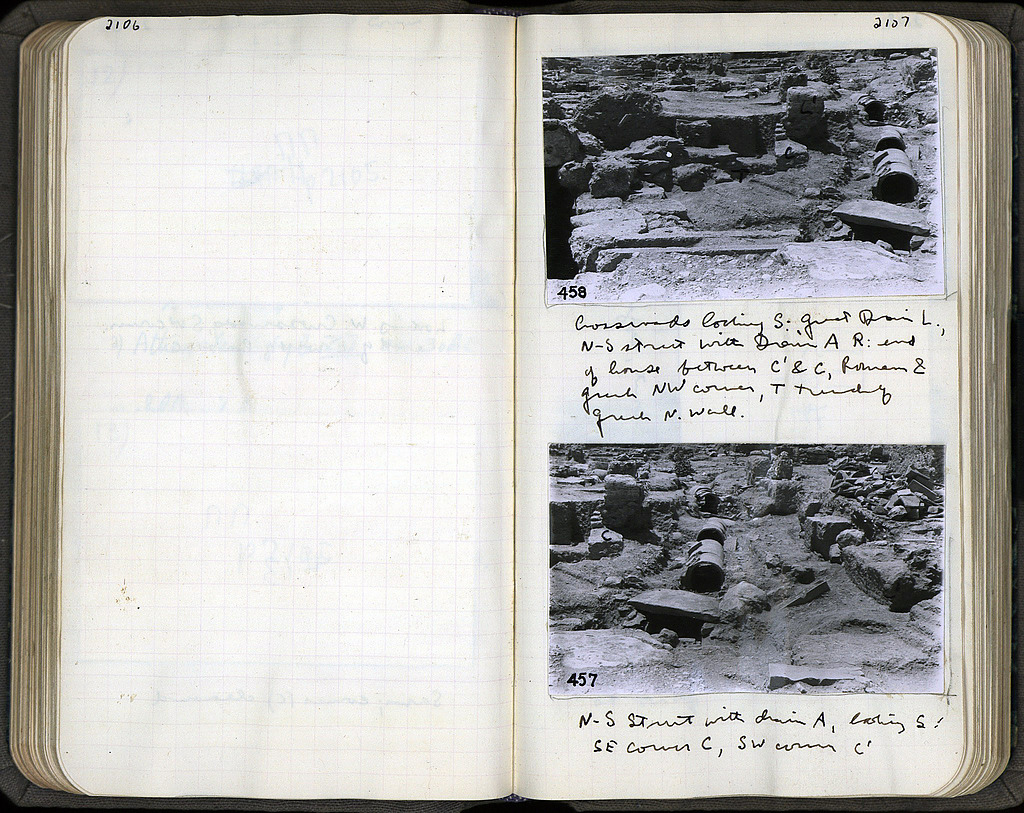 2106
2107
C'
C
T
458
Crossroads looking S: great Drain L.,
N-S street with Drain A R: end
of house between C' & C, Roman &
greek NW corner, T trench of
greek N. Wall.
C
457
N-S Street with drain A, looking S:
SE corner C, SW corner C'